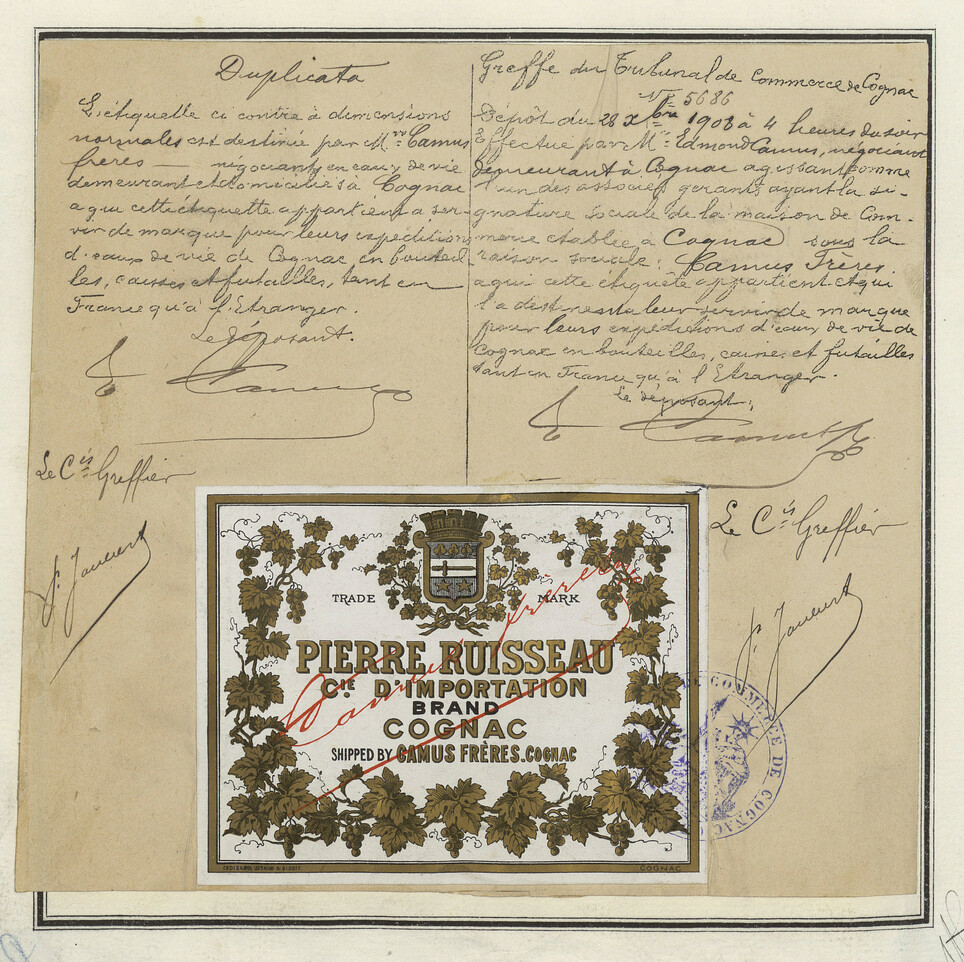 Duplicata
L'étiquette ci contre à dimensions
normales est destinée par M.rs Camus
frères négociants en eaux de vie
demeurant et domiciliés à Cognac
a qui cette étiquette appartient a ser-
vir de marque pour leurs expéditions
d'eaux de vie de Cognac en bouteil
les, caisses et futailles, tant en
France qu'à l'Etranger.
Le déposant.
Camus
Le Cis Greffier
Greffe du Tribunal de Commerce de Cognac
N° 5686
Dépôt du 28 Xbre 1903 à 4 heures du soir
Effectué par Mr Edmond Camus, négociant
demeurant à Cognac agissant comme
l'un des associés gérants ayant la si-
gnature sociale de la maison de Com-
merce établie à Cognac sous la
raison sociale: Camus Frères.
a qui cette étiquette appartient et qui
l'a destine a leur servir de marque
pour leurs expéditions d'eaux de vie de
Cognac en bouteilles, caisses et futailles
tant en France qu'à l'Etranger.
Le déposant:
Camus
Le Cis Greffier
TRADE MARK
PIERRE RUISSEAU
CIE D'IMPORTATION
BRAND
COGNAC
SHIPPED BY CAMUS FRÈRES. COGNAC
Camus frères
COGNAC
DE COMMERCE DE COGNAC